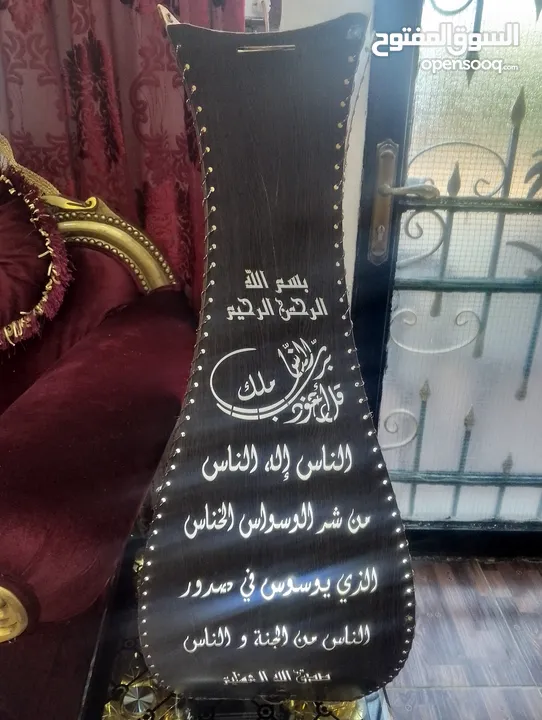 السوق المفتوح
opensooq.com
بسم الله
الرحمن الرحيم
قل أعوذ برب الناس ملك
الناس إله الناس
من شر الوسواس الخناس
الذي يوسوس في صدور
الناس من الجنة و الناس
صدق الله العظيم